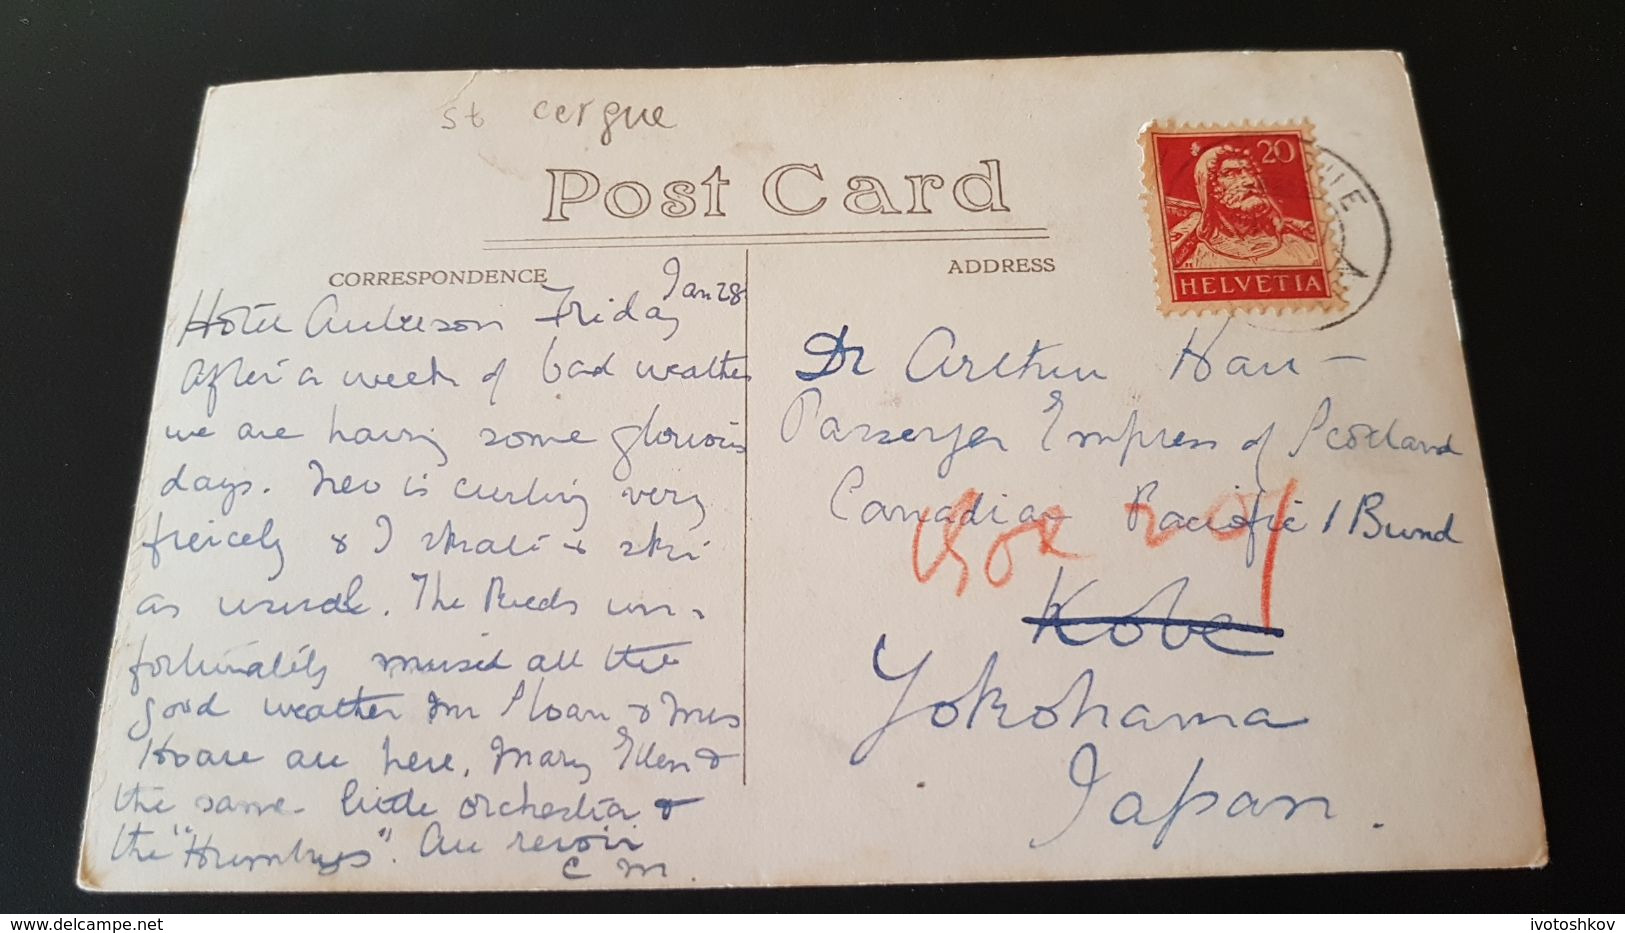 St Cergue
Post Card
20
HELVETIA
CORRESPONDENCE
ADDRESS
Hotel Friday Jan 28
After a week of bad weather
we are having some glorious
days. is curling very
feircely & I skate & ski
as usual. The Reeds un-
fortunately missed all the
good weather Mr Sloan & Mrs
Hoare are here, Mary Ellen &
the same little orchestra &
the "Humbys". Au revoir
C M.
Dr Arthur
Passenger Empress of Scotland
Canadian Pacific 1 Bund
Kobe
Yokohama
Japan.
delcampe.net
ivotoshkov